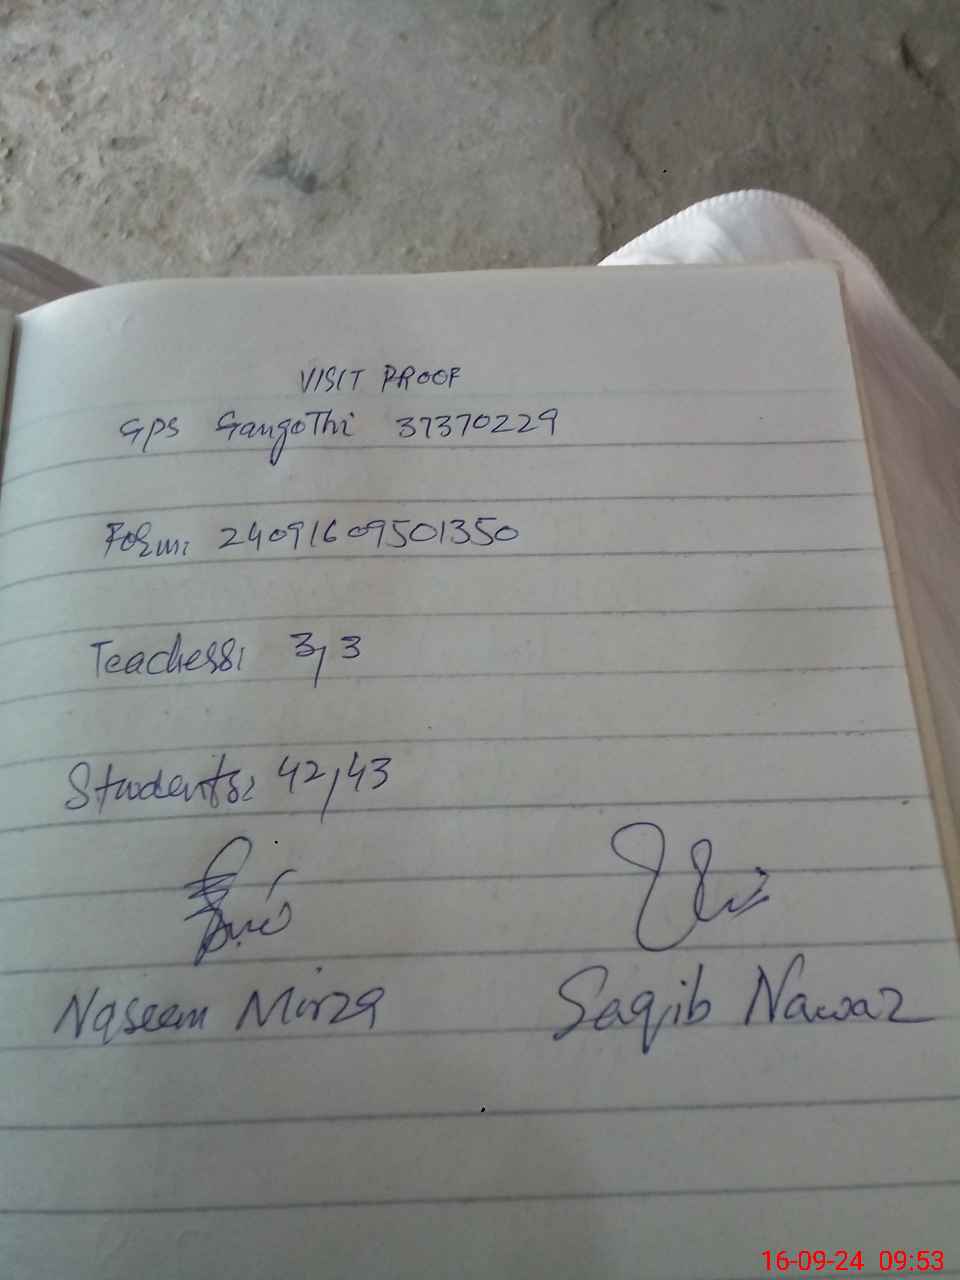 VISIT PROOF
GPS GangoThi 37370229
Form: 24091609501350
Teachers: 3, 3
Students: 42, 43
Naseem Mirza
Saqib Nawaz
16-09-24 09:53